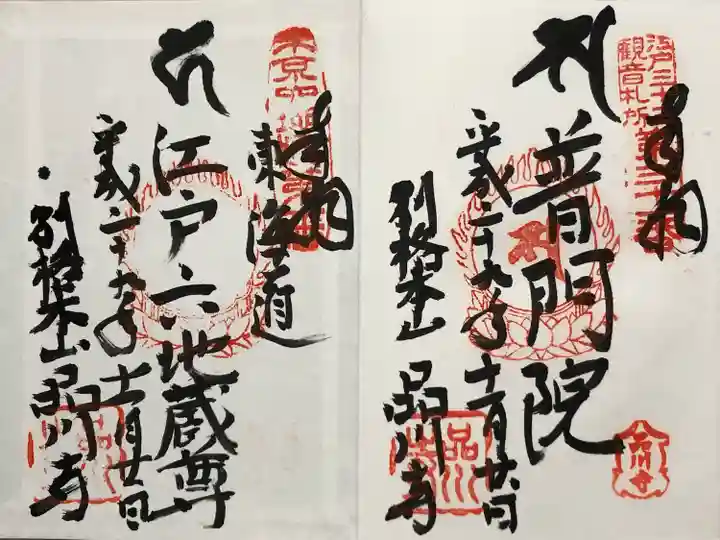 奉拝
普門院
平成二十九年十一月廿日
別格本山 品川寺
江戸三十三
観音札所
第三十一番
品川
奉拝
東海道
江戸六地蔵尊
平成二十九年十一月廿日
別格本山 品川寺